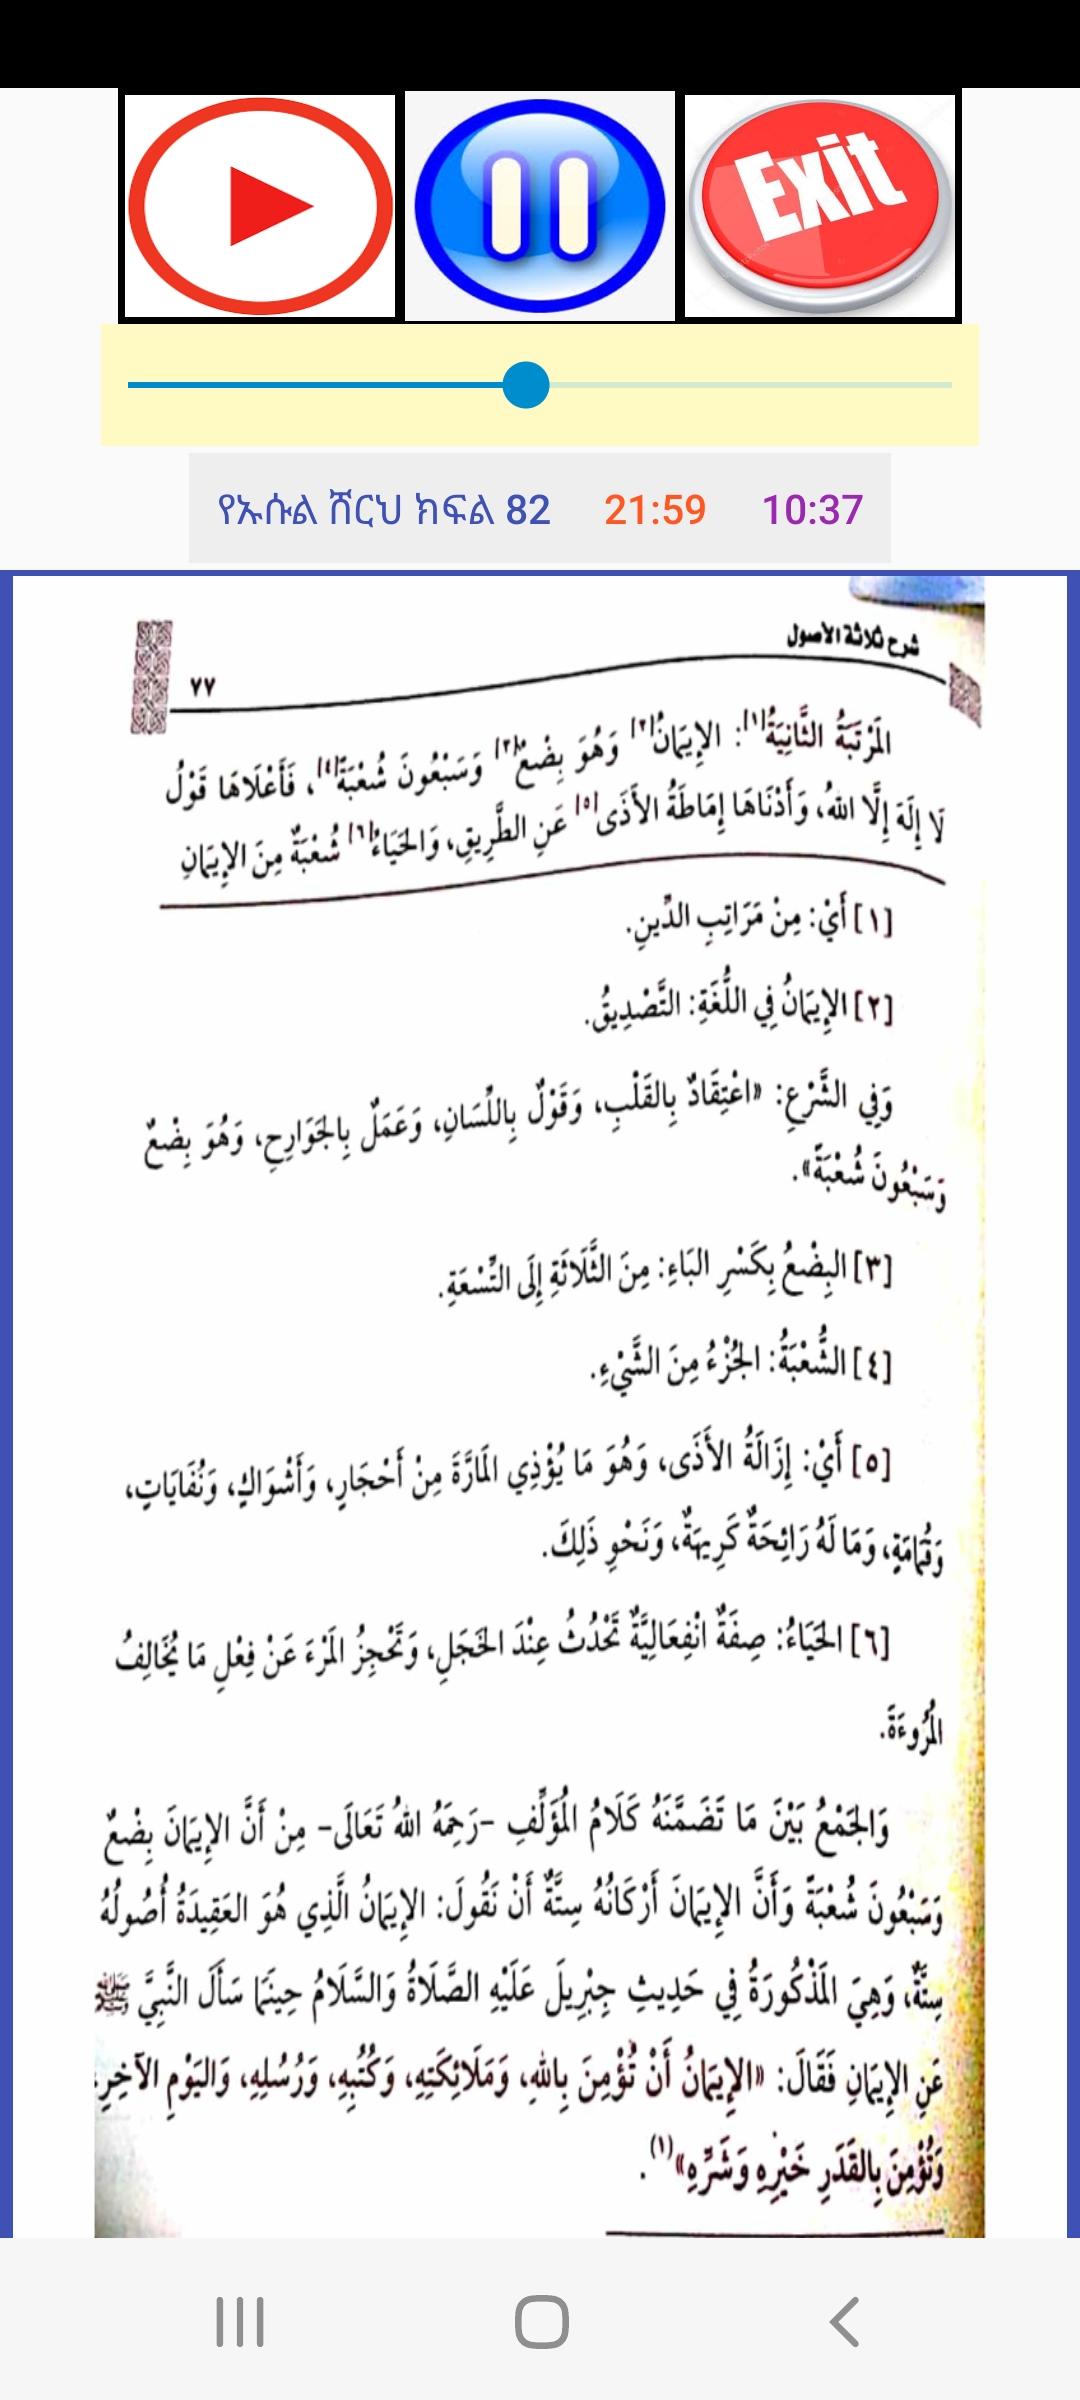 Exit
የኡሱል ሸርህ ክፍል 82 21:59 10:37
شرح ثلاثة الأصول
٧٧
المَرْتَبَةُ الثَّانِيَةُ[١]: الإِيمَانُ[٢] وَهُوَ بِضْعٌ[٣] وَسَبْعُونَ شُعْبَةً[٤]، فَأَعْلَاهَا قَوْلُ
لَا إِلَهَ إِلَّا اللهُ، وَأَدْنَاهَا إِمَاطَةُ الأَذَى[٥] عَنِ الطَّرِيقِ، وَالحَيَاءُ[٦] شُعْبَةٌ مِنَ الإِيمَانِ
[١] أَيْ: مِنْ مَرَاتِبِ الدِّينِ.
[٢] الإِيمَانُ فِي اللُّغَةِ: التَّصْدِيقُ.
وَفِي الشَّرْعِ: «اعْتِقَادٌ بِالقَلْبِ، وَقَوْلٌ بِاللِّسَانِ، وَعَمَلٌ بِالجَوَارِحِ، وَهُوَ بِضْعٌ
وَسَبْعُونَ شُعْبَةً».
[٣] البِضْعُ بِكَسْرِ البَاءِ: مِنَ الثَّلَاثَةِ إِلَى التِّسْعَةِ.
[٤] الشُّعْبَةُ: الجُزْءُ مِنَ الشَّيْءِ.
[٥] أَيْ: إِزَالَةُ الأَذَى، وَهُوَ مَا يُؤْذِي المَارَّةَ مِنْ أَحْجَارٍ، وَأَشْوَاكٍ، وَنُفَايَاتٍ،
وَقُمَامَةٍ، وَمَا لَهُ رَائِحَةٌ كَرِيهَةٌ، وَنَحْوِ ذَلِكَ.
[٦] الحَيَاءُ: صِفَةٌ انْفِعَالِيَّةٌ تَحْدُثُ عِنْدَ الخَجَلِ، وَتَحْجِزُ المَرْءَ عَنْ فِعْلِ مَا يُخَالِفُ
المُرُوءَةَ.
وَالجَمْعُ بَيْنَ مَا تَضَمَّنَهُ كَلَامُ المُؤَلِّفِ -رَحِمَهُ اللهُ تَعَالَى- مِنْ أَنَّ الإِيمَانَ بِضْعٌ
وَسَبْعُونَ شُعْبَةً وَأَنَّ الإِيمَانَ أَرْكَانُهُ سِتَّةٌ أَنْ نَقُولَ: الإِيمَانُ الَّذِي هُوَ العَقِيدَةُ أُصُولُهُ
سِتَّةٌ، وَهِيَ المَذْكُورَةُ فِي حَدِيثِ جِبْرِيلَ عَلَيْهِ الصَّلَاةُ وَالسَّلَامُ حِينَمَا سَأَلَ النَّبِيَّ ﷺ
عَنِ الإِيمَانِ فَقَالَ: «الإِيمَانُ أَنْ تُؤْمِنَ بِاللهِ، وَمَلَائِكَتِهِ، وَكُتُبِهِ، وَرُسُلِهِ، وَاليَوْمِ الآخِرِ،
وَتُؤْمِنَ بِالقَدَرِ خَيْرِهِ وَشَرِّهِ»(١).